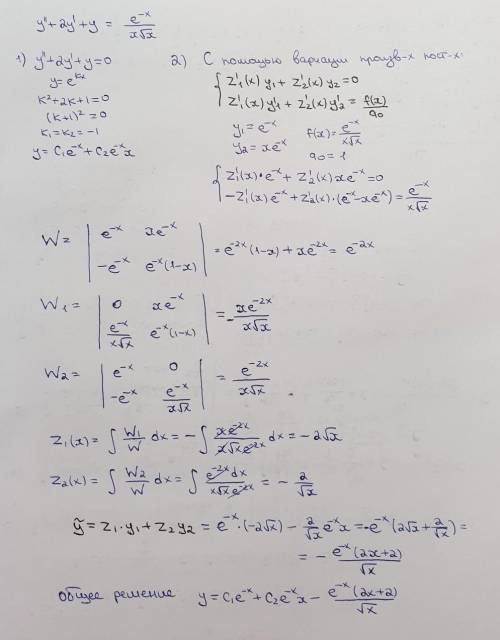 y'' + 2y' + y = e^{-x}/(x√x)
1) y'' + 2y' + y = 0
y = e^{kx}
k² + 2k + 1 = 0
(k+1)² = 0
k₁ = k₂ = -1
y = C₁e^{-x} + C₂e^{-x}x
2) С помощью вариации произв-х пост-х:
{ z₁'(x) y₁ + z₂'(x) y₂ = 0
z₁'(x) y₁' + z₂'(x) y₂' = f(x)/a₀
y₁ = e^{-x}
y₂ = xe^{-x}
f(x) = e^{-x}/(x√x)
a₀ = 1
{ z₁'(x)·e^{-x} + z₂'(x) xe^{-x} = 0
-z₁'(x) e^{-x} + z₂'(x)·(e^{-x} - xe^{-x}) = e^{-x}/(x√x)
W = | e^{-x} xe^{-x} |
| -e^{-x} e^{-x}(1-x) | = e^{-2x}(1-x) + xe^{-2x} = e^{-2x}
W₁ = | 0 xe^{-x} |
| e^{-x}/(x√x) e^{-x}(1-x) | = -xe^{-2x}/(x√x)
W₂ = | e^{-x} 0 |
| -e^{-x} e^{-x}/(x√x) | = e^{-2x}/(x√x)
z₁(x) = ∫ W₁/W dx = -∫ xe^{-2x}/(x√x e^{-2x}) dx = -2√x
z₂(x) = ∫ W₂/W dx = ∫ e^{-2x}dx/(x√x e^{-2x}) = -2/√x
ỹ = z₁·y₁ + z₂y₂ = e^{-x}·(-2√x) - 2/√x e^{-x}x = -e^{-x}(2√x + 2/√x) =
= - e^{-x}(2x+2)/√x
общее решение y = C₁e^{-x} + C₂e^{-x}x - e^{-x}(2x+2)/√x